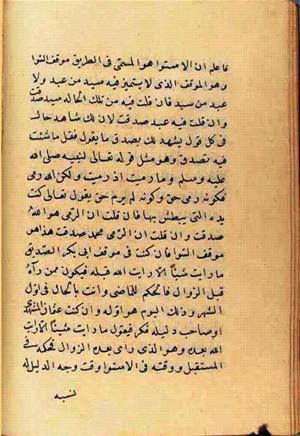 فاعلم ان الاستوا هو المسمى فى الطريق موقف السوا
وهو الموقف الذى لا يتميز فيه سيد من عبد ولا
عبد من سيد فان قلت فيه من تلك الحاله سيد صدقت
وان قلت فيه عبد صدقت لان لك شاهد حال
فى كل قول يشهد لك بصدق ما يقول فقل ما شئت
فيه تصدق وهو مثل قوله تعالى لنبيه صلى الله
عليه وسلم وما رميت اذ رميت ولكن الله رمى
فكونه رمى حق وكونه لم يرم حق يقول تعالى كنت
يده التى يبطش بها فان قلت ان الرمى هو الله
صدقت وان قلت ان الرمى محمد صدقت هذا هو
موقف السوا فان كنت فى موقف ابى بكر الصديق
ما رايت شيئا الا رايت الله قبله فيكون ممن رآه
قبل الزوال فالحكم للماضى وانت بالحال فى اول
الشهر وذلك اليوم هو اوله وان كنت عثمانى المشهد
او صاحب دليله فكر فيقول ما رايت شيئا الا رايت
الله بعده وهو الذى راى بعد الزوال فحكمه فى
المستقبل ووقته فى الاستوا وقت وجه الدليل له
نسبه